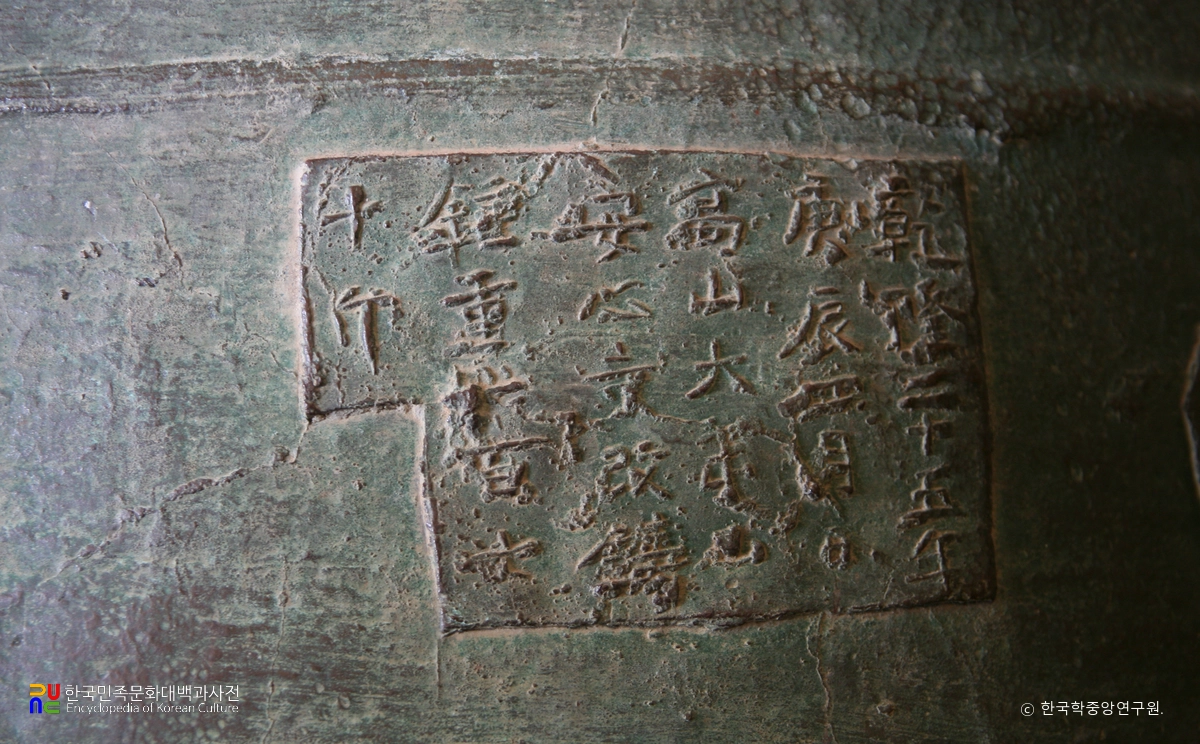 乾隆二十五年
庚辰四月日
高山大芚山
安心寺改鑄
鍾重百
十斤
한국민족문화대백과사전
Encyclopedia of Korean Culture
ⓒ 한국학중앙연구원.